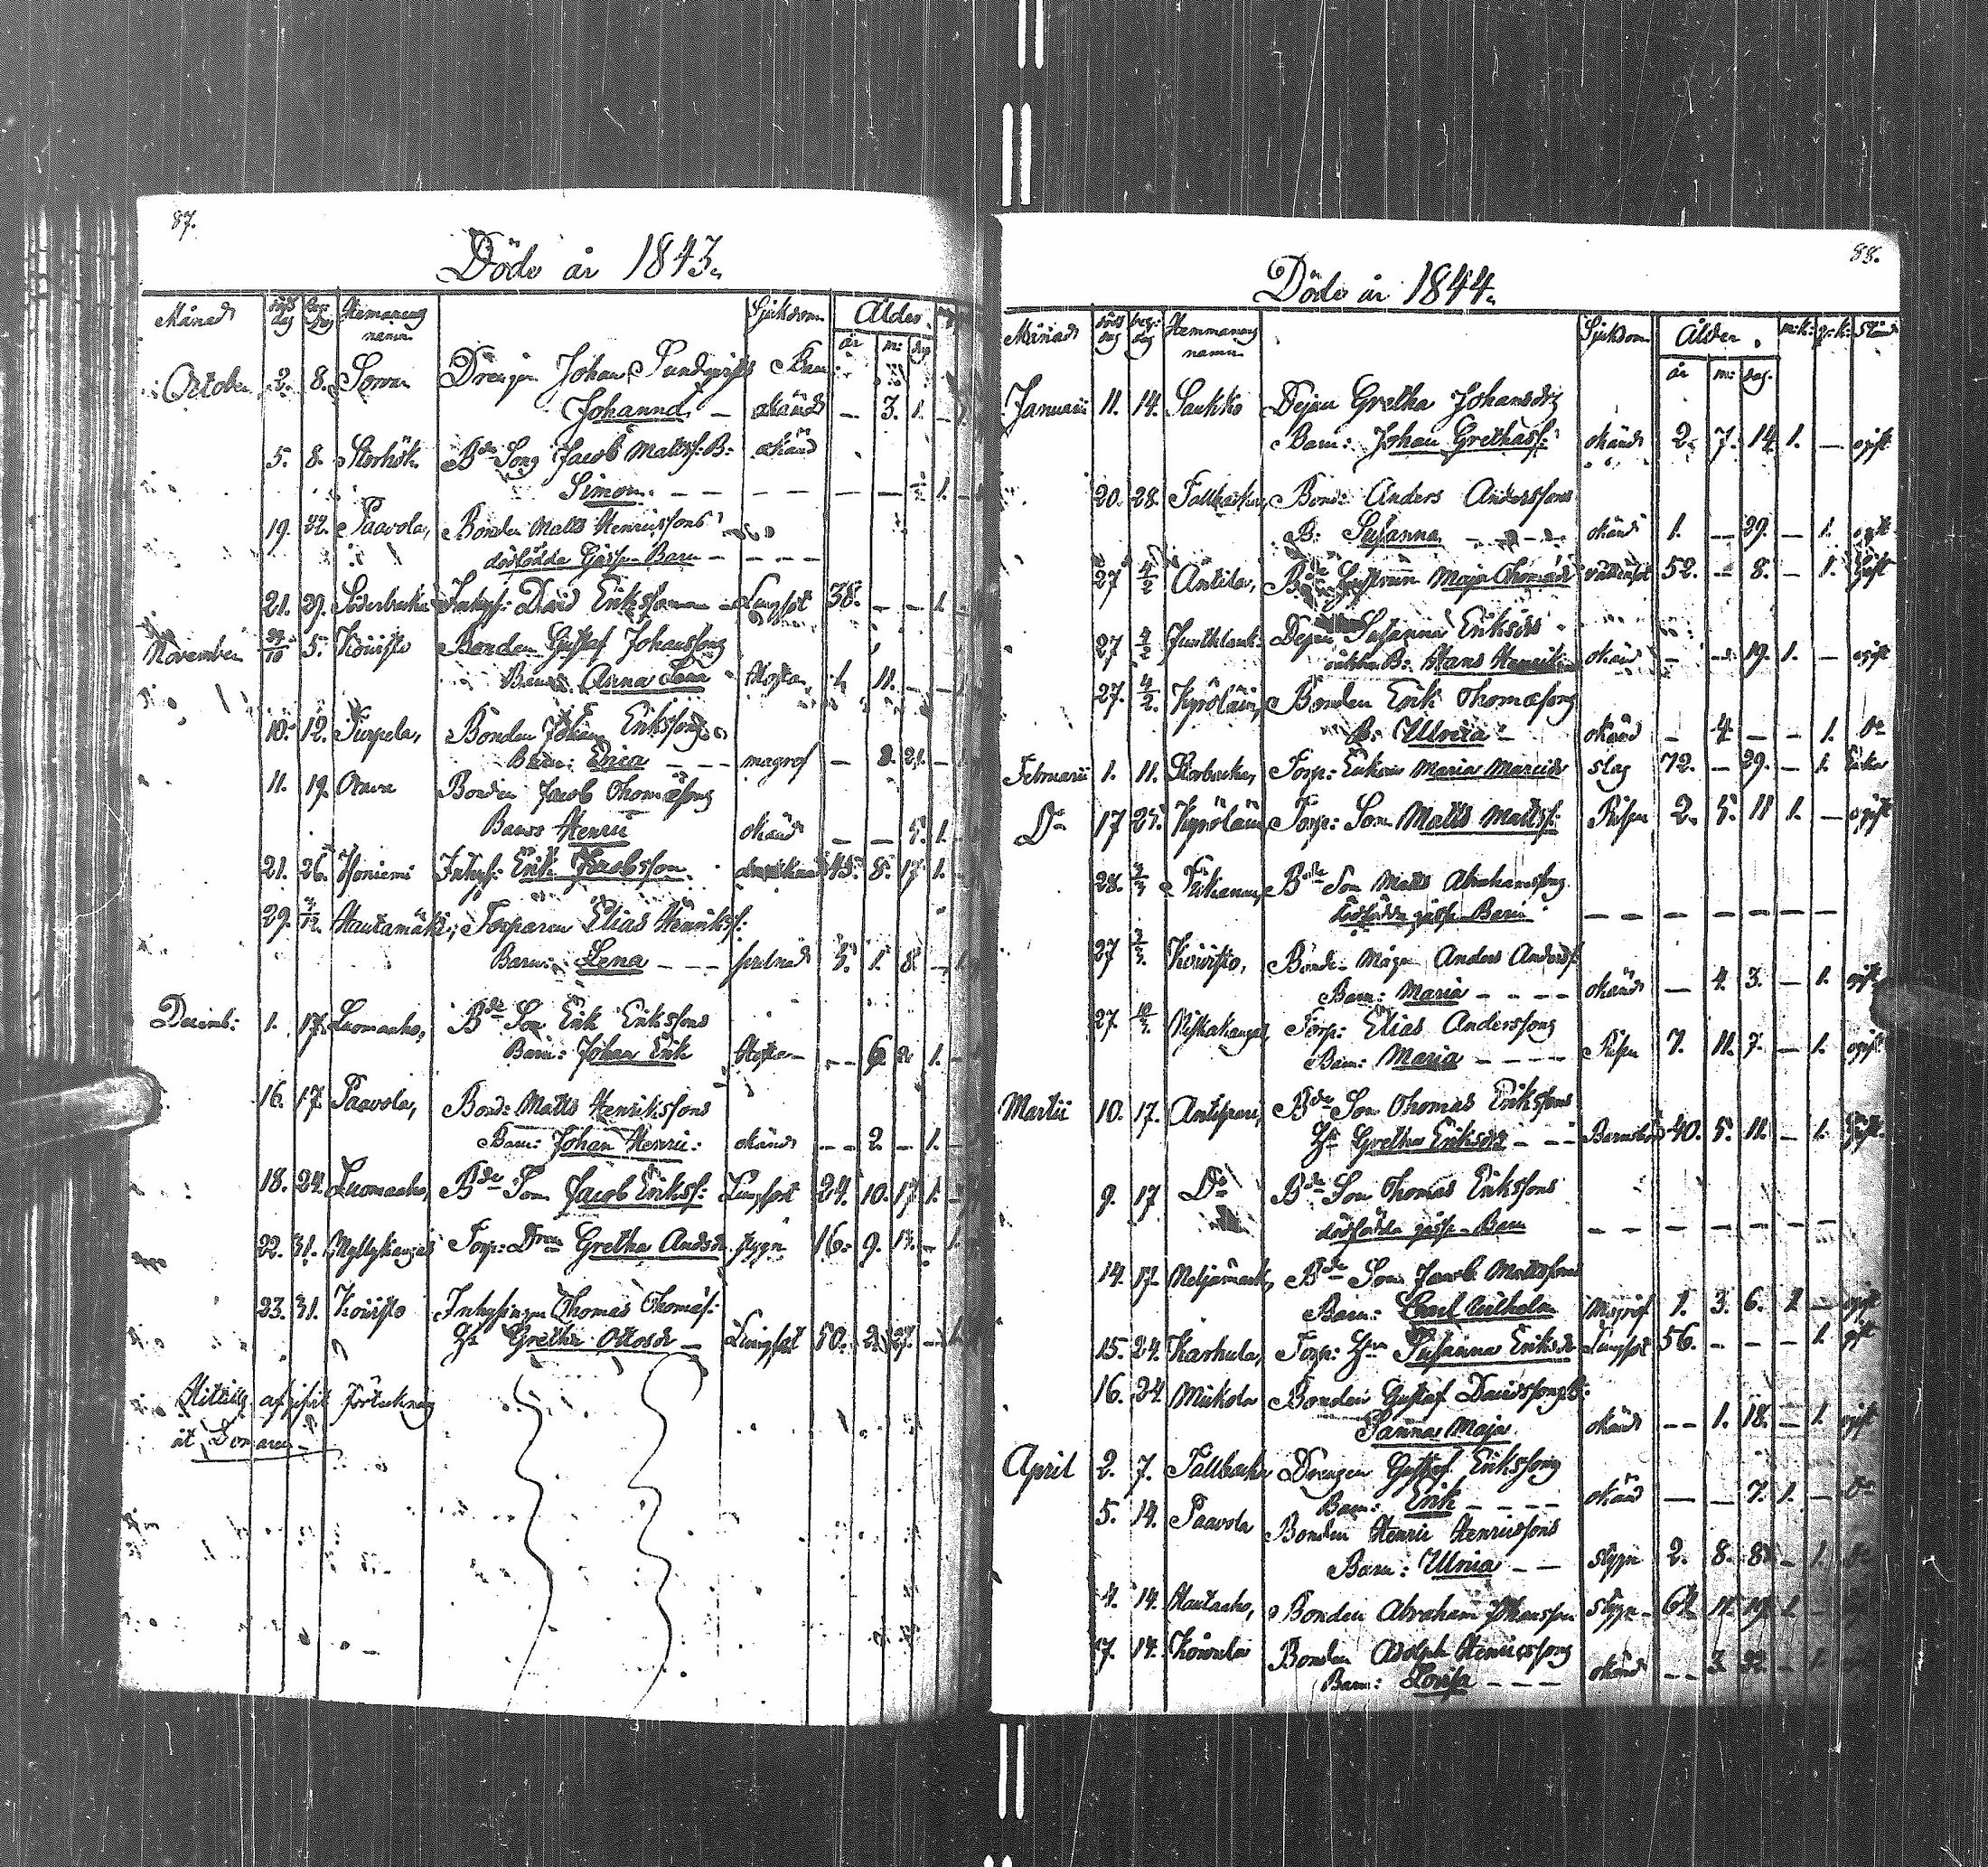 87.
Döde år 1843.
Månad döds dag beg: dag Hemmans namn Sjukdom Ålder
år m: dag
October 2. 8. Drängen Johan Barn:
Johannes - okänd - 3. 1. -
5. 8. Storhök Bde Sons Jacob Matts: B: okänd
Simon - - - - - - 1.
19. 22. Paavola, Bonden Matts Henrikssons
dödfödda Gosse Barn - - - -
21. 29. Söderbacka Inhys: David Eriksson Lungsot 38. - - 1.
November 29/10 5. Köuisto Bonden Gustaf Johanssons
Barn: Anna Hosta 11. -
10. 12. Turpela, Bonden Johan Erikssons
Barn: Erica - - - magref - 8. 21. -
11. 19. Bonden Jacob Thomæsons
Barn Henric okänd - - 5. 1.
21. 26. Isoniemi Inhys: Erik Jacobsson 8. 17. 1.
29. Hautamäki, Torparen Elias Henriks:
Barn: Lena - - - 5. 1. 8. -
Decemb: 1. 17. Luomaaho, Bde Son Erik Erikssons
Barn: Johan Erik Hosta - - 6. 2. 1. -
16. 17. Paavola, Bond: Matts Henrikssons
Barn: Johan Henric: okänd - - 2. - 1. -
18. 24. Luomaaho, Bde Son Jacob Eriks: Lungsot 24. 10. 17. 1. -
22. 31. Myllykangas Torp: Dren Gretha Andsdr stygn 16. 9. - 1.
23. 31. Köuisto Inhysingen Thomas Thomæs:
Hu Gretha Ottosdr - Lungsot 50. 2. 27. - 1.
Hittills afgifvit förteckning
åt Domaren
88.
Döde år 1844.
Månad döds dag beg: dag Hemmans namn Sjukdom Ålder. m:k: q:k: Stånd
år m: dag.
Januari 11. 14. Saukko Dejan Gretha Johansdrs
Barn: Johan Grethas: okänd 2. 7. 14. 1. - ogift
20. 28. Tallbacka, Bond: Anders Anderssons
B: Susanna - - - - okänd 1. - 29. - 1. ogift
27 4/2 Antila, Bde Maja Thomædr 52. - 8. - 1. Gift
27 4/2 Dejan Susanna Eriksdrs
B: Hans Henrik okänd - - 19. 1. - ogift
27. 4/2. Kyröläin, Bonden Erik Thomæsons
B: Ulrica - okänd - 4. - - 1. Do
Februari 1. 11. Storbacka, Torp: Enkan Maria Marcidr slag 72. - 29. - 1. Enka
Do 17 25. Kyröläin, Torp: Son Matts Matts: Rifven 2. 5. 11 1. - ogift
28. 3/3 Bde Son Matts Abrahamssons
dödfödda gosse Barn - - - - - - -
27 3/3. Köuisto, Bond: Mågen Anders Anders:
Barn: Maria - - - - okänd - 4. 3. - 1. ogift
27. 10/3. Niskakangas, Torp: Elias Anderssons
Barn: Maria - - - - Rifven 7. 11. 7. - 1. ogift
Martii 10. 17. Bde Son Thomas Erikssons
Hu Gretha Eriksdr - - - Barnsbörd 40. 5. 11. - 1. Gift.
9. 17 Do Bde Son Thomas Erikssons
dödfödda gosse Barn - - - - - - -
14. 17. Bde Son Jacob Mattssons
Barn: Carl Wilhelm Magref 1. 3. 6. 1. - ogift
15. 24. Karhula, Torp: Hun Susanna Eriksdr Lungsot 56. - - - 1. gift
16. 24 Mickola Bonden Gustaf Davidssons B:
Sanna Maja okänd - - 1. 18. - 1. ogift
April 2. 7. Tallbacka Drengen Gustaf Erikssons
Barn: Erik - - - - okänd - - 7. 1. - Do
5. 14. Paavola Bonden Henric Henricssons
Barn: Ulrica - - stygn 2. 8. 8. - 1. Do
4. 14. Hautaaho, Bonden Abraham Johansson stygn
7. 14. Bonden Adolph Henricssons
Barn: Lovisa - - - okänd - - 3. 22. - 1.